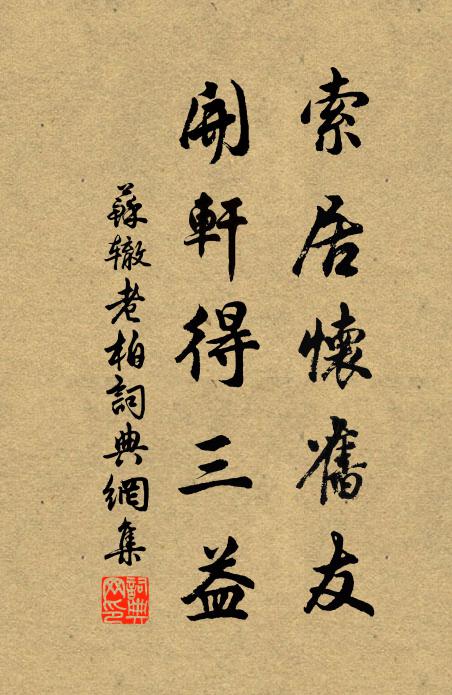 索居懷舊友
開軒得三益
蘇辙老柏詞典網集
詞典
网印